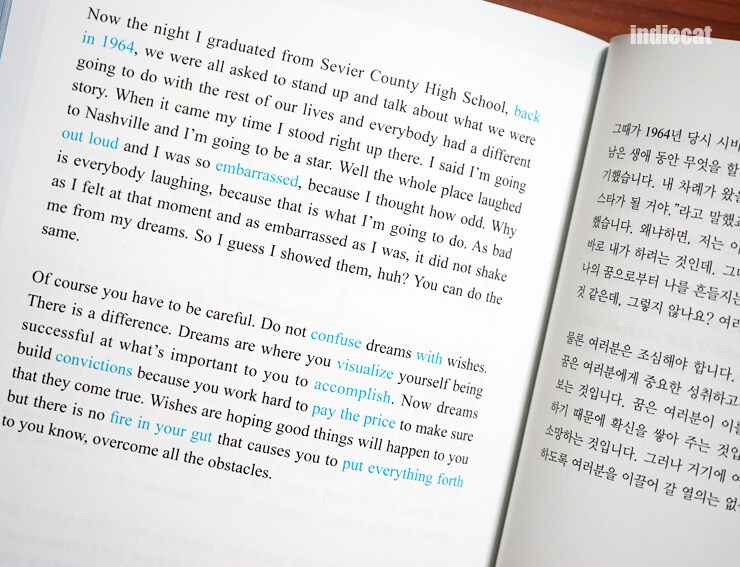 indiecat
Now the night I graduated from Sevier County High School, back
in 1964, we were all asked to stand up and talk about what we were
going to do with the rest of our lives and everybody had a different
story. When it came my time I stood right up there. I said I'm going
to Nashville and I'm going to be a star. Well the whole place laughed
out loud and I was so embarrassed, because I thought how odd. Why
is everybody laughing, because that is what I'm going to do. As bad
as I felt at that moment and as embarrassed as I was, it did not shake
me from my dreams. So I guess I showed them, huh? You can do the
same.
Of course you have to be careful. Do not confuse dreams with wishes.
There is a difference. Dreams are where you visualize yourself being
successful at what's important to you to accomplish. Now dreams
build convictions because you work hard to pay the price to make sure
that they come true. Wishes are hoping good things will happen to you
but there is no fire in your gut that causes you to put everything forth
to you know, overcome all the obstacles.
그때가 1964년 당시
남은 생애 동안 무엇을
기했습니다. 내 차례가
스타가 될 거야."라고
했습니다. 왜냐하면, 저는
바로 내가 하려는 것인데.
나의 꿈으로부터 나를
것 같은데, 그렇지 않나요?
물론 여러분은 조심해야 합니다.
꿈은 여러분에게 중요한
보는 것입니다. 꿈은 여러분이
하기 때문에 확신을 쌓아 주는
소망하는 것입니다. 그러나 거기에
하도록 여러분을 이끌어 갈 열의는